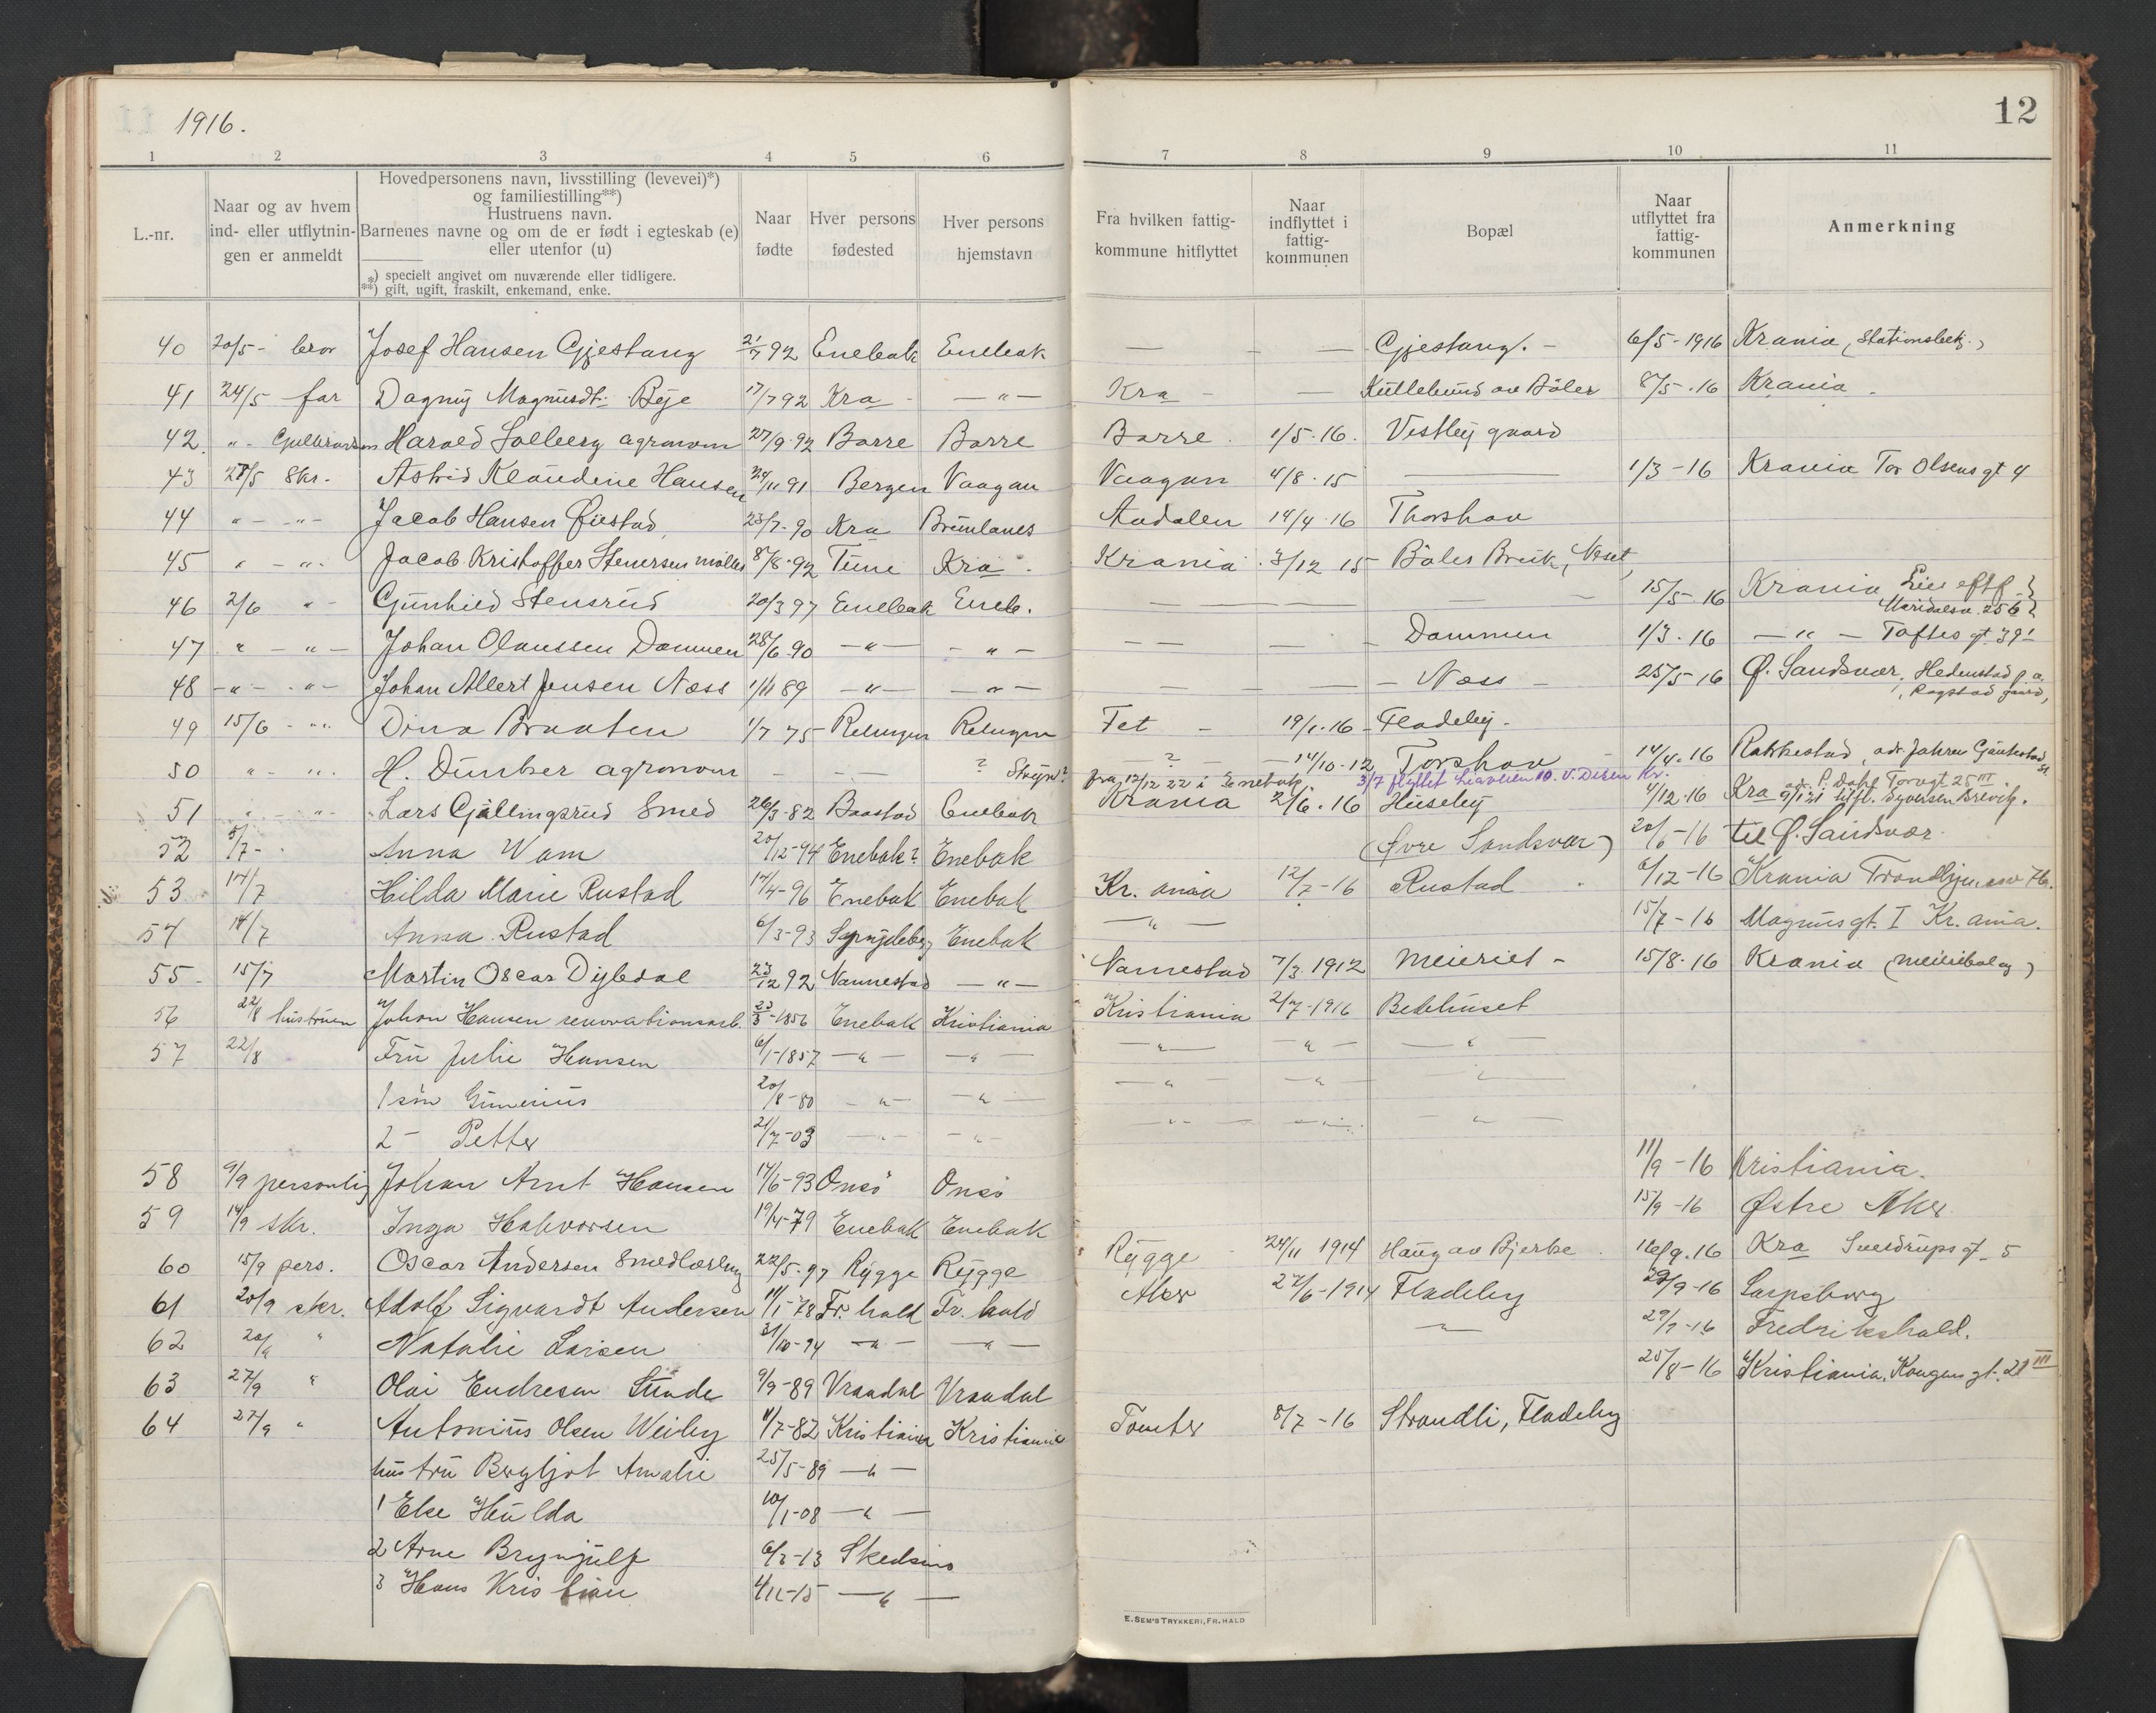 1916.
12
1 2 3 4 5 6 7 8 9 10 11
L.-nr.
Naar og av hvem
ind- eller utflytnin-
gen er anmeldt
Hovedpersonens navn, livsstilling (levevei)*)
og familiestilling**)
Hustruens navn.
Barnenes navne og om de er født i egteskab (e)
eller utenfor (u)
*) specielt angivet om nuværende eller tidligere.
**) gift, ugift, fraskilt, enkemand, enke.
Naar
fødte
Hver persons
fødested
Hver persons
hjemstavn
Fra hvilken fattig-
kommune hitflyttet
Naar
indflyttet i
fattig-
kommunen
Bopæl
Naar
utflyttet fra
fattig-
kommunen
Anmerkning
40 20/5 - bror Josef Hansen Gjestang 21/7 92 Enebak Enebak — — — Gjestang. - 6/5-1916 Krania (Stationsbetj.)
41 24/5 far Dagny Magnusdt. Bye 17/7 92 Kra - — " — Kra - — Kullebund av Böler 8/5.16 Krania.
42. " - Harald Solberg agronom 27/9.92 Borre Borre Borre. 1/5.16. Vestby gaard
43 27/5 Skr. Astrid Klaudine Hansen 24/11 91 Bergen Vaagan Vaagan 4/8.15 — 1/3-16 Krania Tor Olsens gt 4
44 " - " - Jacob Hansen Øiestad 23/7-90 Kra Brunlanes Aadalen 14/4.16 Thorshov
45 " - " - Jacob Kristoffer Stenersen møller 8/8.92 Tune Kra. Krania. 3/12 15 Böler Bruk,
46 2/6 " - Gunhild Stensrud 20/3 97 Enebak Eneb. — — — 15/5.16 Krania
Maridalsv. 256
47 " - " - Johan Olaussen Dammen 28/6.90 — " — — " — — — — Dammen 1/3.16 — " — Toftes gt 39 I
48 - " - - " - Johan Albert Jensen Næss 1/11 89 — " — — " — — — — Næss - 25/5-16 Ø. Sandsvær, Hedenstad p.a.
Ragstad gaard,
49 15/6 - " - Dina Braaten 1/7 75 Relingen Relingen Fet - 19/1.16 - Fladeby -
50 " - " - H. Dunker agronom - - - ? ? - 14/10-12 Torshov - 14/4.16 Rakkestad,
fra 12/12 22 i Enebak 3/7 flyttet
51 " - " - Lars Gjællingsrud Smed 26/3-82 Baastad Enebak Krania 2/6.16 Huseby 4/12.16 Kra
52 5/7 - Anna Wam 20/12-94 Enebak? Enebak (Øvre Sandsvær) 20/6-16 til Ø. Sandsvær.
53 14/7 Hilda Marie Rustad 14/4-96 Enebak Enebak Kr.ania 12/7-16 Rustad 6/12-16 Krania Trondhjemsv 76.
54 14/7 Anna Rustad 6/3-93 Spydeberg Enebak — " — 15/7-16 Magnusgt. I Kr.ania.
55 - 15/7 Martin Oscar Dybdal 23/12 92 Nannestad — " — Nannestad 7/3.1912 Meieriet - 15/8.16 Krania (meieribolag)
56 22/8 hustruen Johan Hansen renovationsarb. 23/3-1856 Enebak Kristiania Kristiania 2/7-1916 Bedehuset
57 22/8 Fru Julie Hansen 6/1-1857 — " — — " — — " — — " — — " —
1 søn Gunerius 20/8-80 — " — — " — — " — — " — — " —
2 - Petter 21/7-03 — " — — " — — " — — " — — " —
58 9/9 personlig Johan Arnt Hansen 14/6-93 Onsö Onsö 11/9-16 Kristiania.
59 14/9 skr. Inga Halvorsen 19/4-79 Enebak Enebak 15/9-16 Østre Aker
60 15/9 pers. Oscar Andersen Smedlærling 22/5-97 Rygge Rygge Rygge 24/11 1914 Haug av Bjerke. 16/9.16 Kra Sverdrupsgt. 5
61 20/9 skr. Adolf Sigvardt Andersen 11/1-78 Fr.hald Fr.hald Aker 27/6-1914 Fladeby 29/9-16 Sarpsborg
62 20/9 " Natalie Larsen 31/10-94 — " — — " — — " — 29/9-16 Fredrikshald.
63 27/9 " Olai Endresen Sunde 9/9-89 Vraadal Vraadal 25/8-16 Kristiania, Kongens gt. 21 III
64 27/9 " Antonius Olsen Weiby 11/7-82 Kristiania Kristiania Tomter 8/7-16 Strandli, Fladeby
hustru Bergljot Amalie 25/5-89 — " —
1 Else Hulda 10/1-08 — " —
2 Arne Brynjulf 6/3-13 Skedsmo
3 Hans Kristian 4/11-15 — " —
E. SEM'S TRYKKERI, FR.HALD